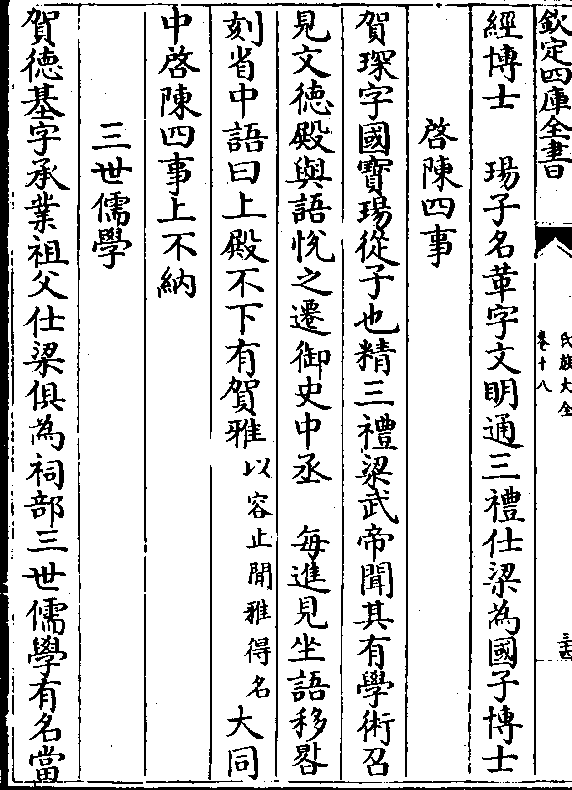 欽定四庫全書
氏族大全
卷十八
三四
經博士　瑒子名革字文明通三禮仕梁為國子博士
啓陳四事
賀琛字國寶瑒從子也精三禮梁武帝聞其有學術召
見文德殿與語悅之遷御史中丞　每進見坐語移晷
刻省中語曰上殿不下有賀雅以容止閒雅得名大同
中啓陳四事上不納
三世儒學
賀德基字承業祖父仕梁俱為祠部三世儒學有名當